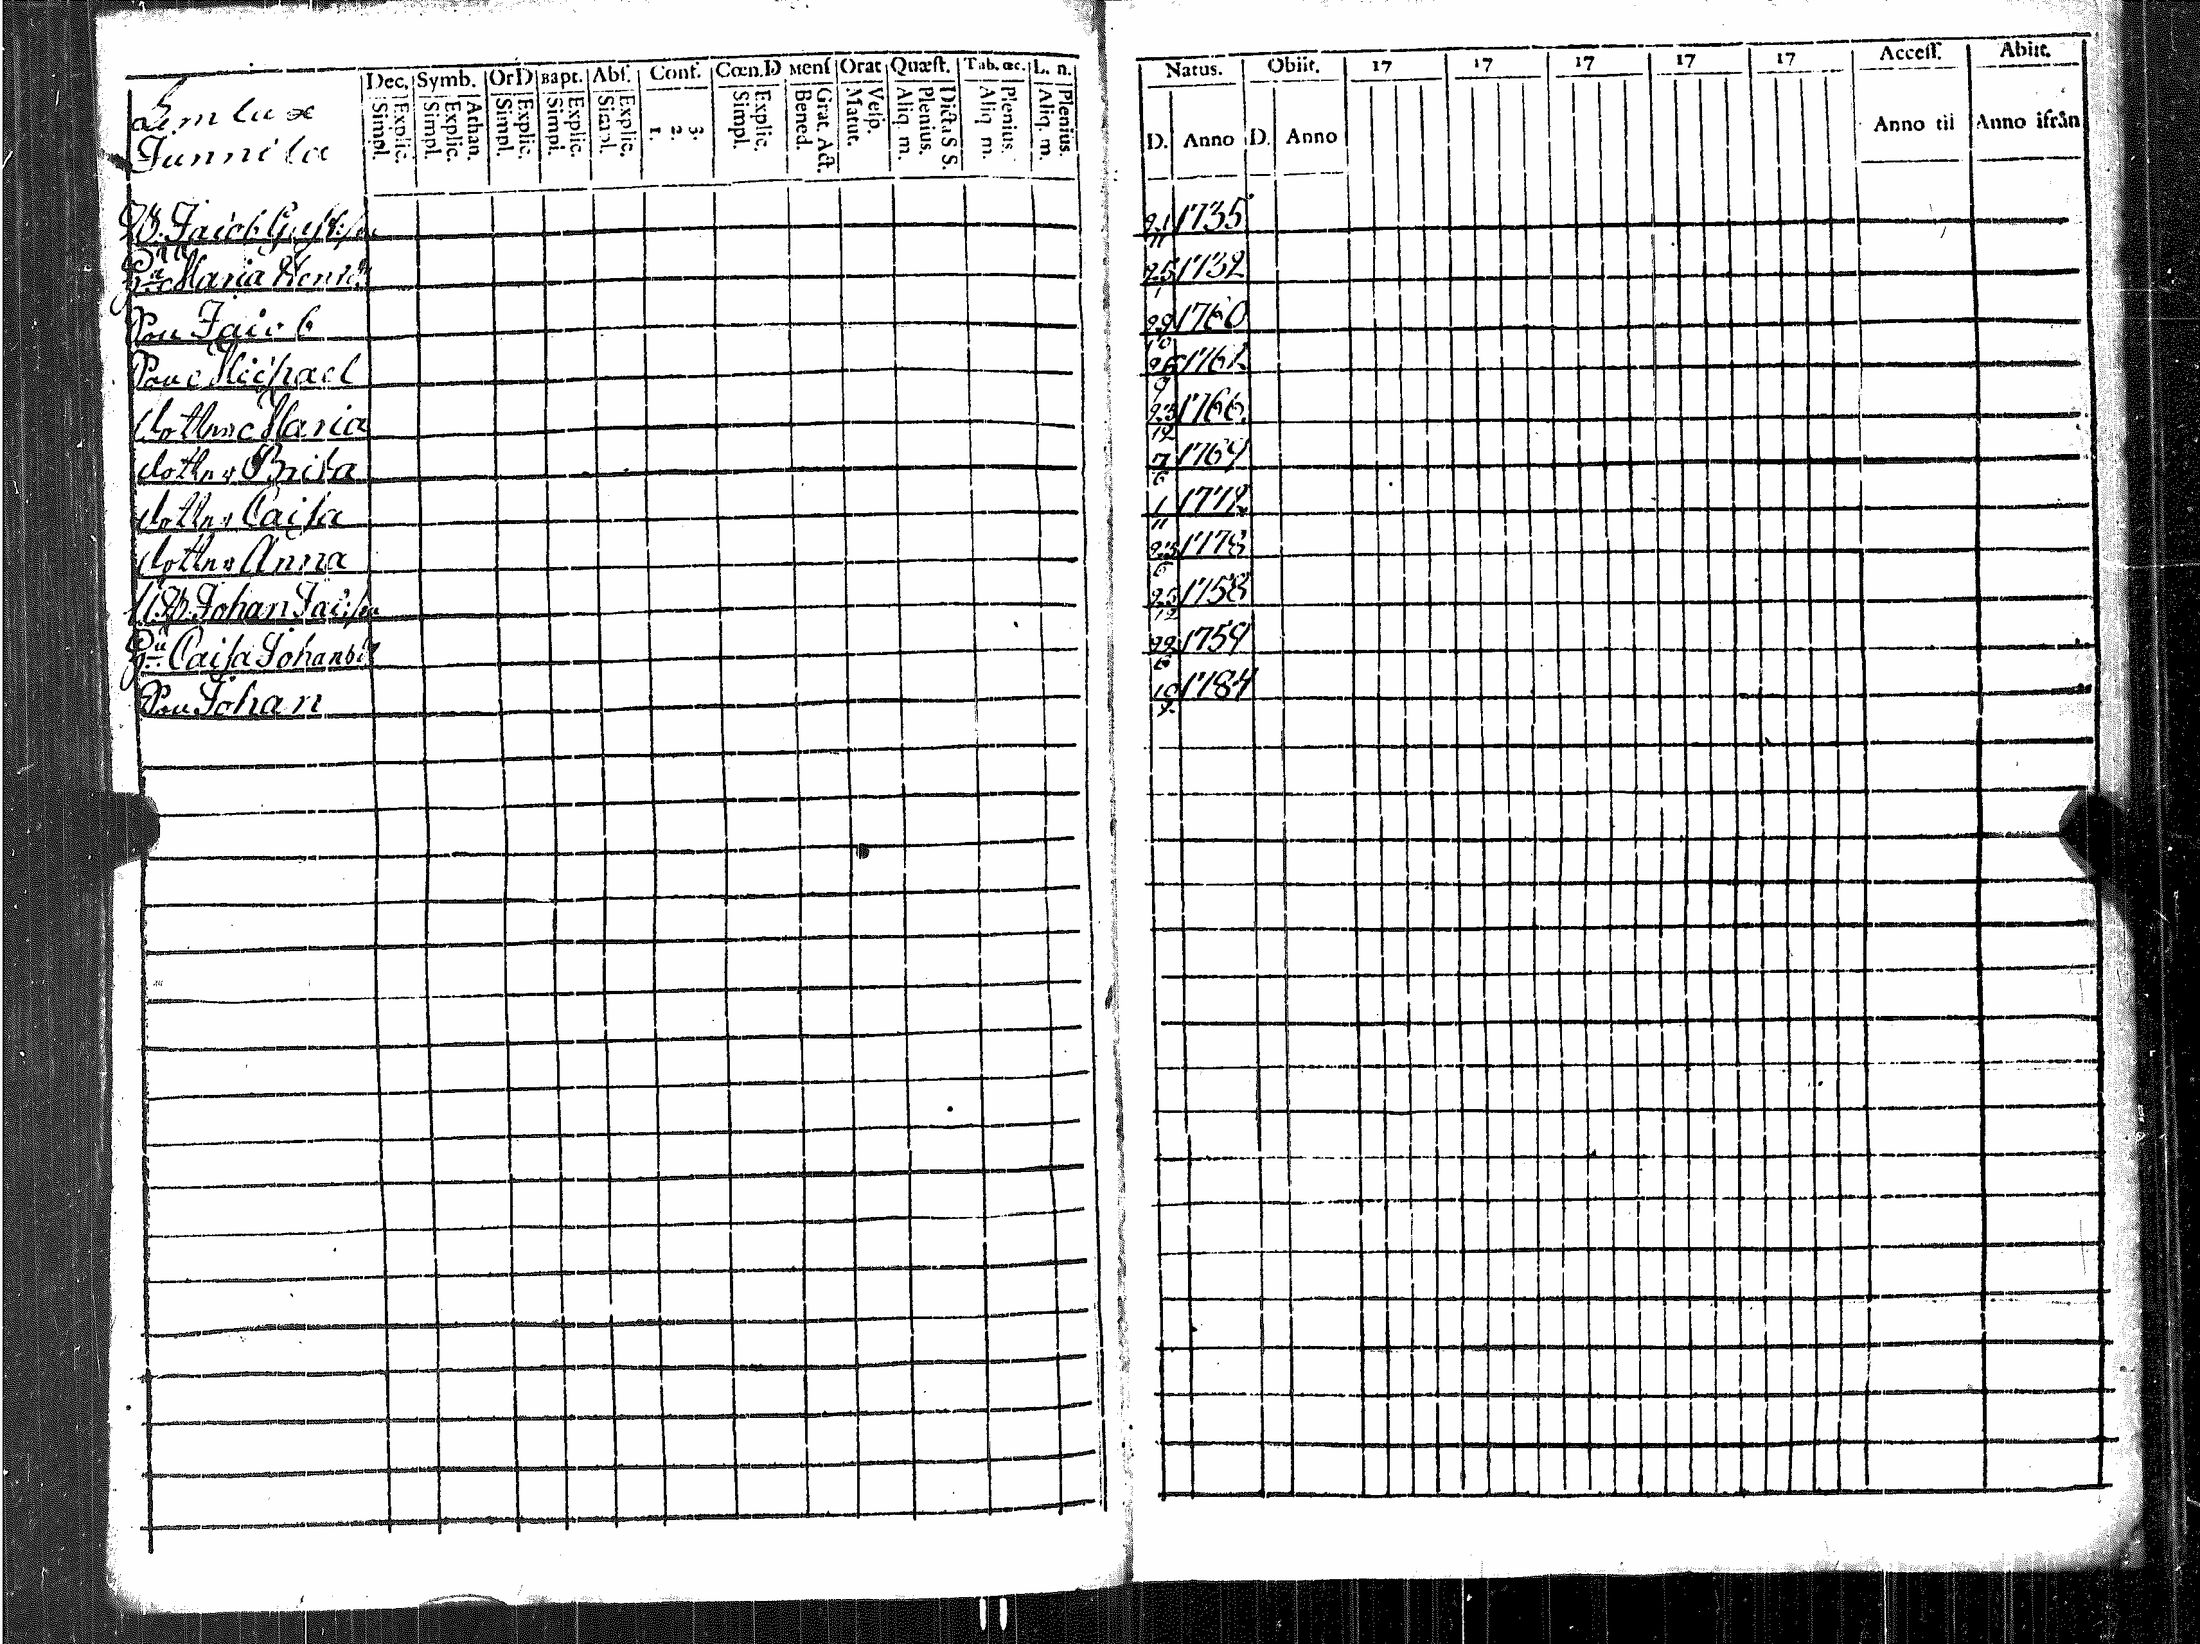 Dec. Symb. Or D Bapt. Abs. Conf. Cœn. D Mens Orat Quæst. Tab. œc. L. n.
Simpl. Explic. Simpl. Explic. Athan. Simpl. Explic. Simpl. Explic. Simpl. Explic. 1. 2. 3. Simpl. Explic. Bened. Grat. Act. Matut. Vesp. Aliq. m. Plenius. Dicta S S. Aliq. m. Plenius. Aliq. m. Plenius.
Natus. Obiit. 17 17 17 17 17 Access. Abiit.
D. Anno D. Anno Anno til Anno ifrån
Junnila
Jacob 21/11 1735
Maria 25/1 1732
Son Jacob 29/10 1760
Son Michael 26/9 1762
dottren Maria 23/12 1766
dottren Brita 7/6 1769
dottren Caisa 1/11 1772
dottren Anna 23/6 1778
Johan 25/12 1758
Caisa 22/6 1759
Son Johan 10 1784
11